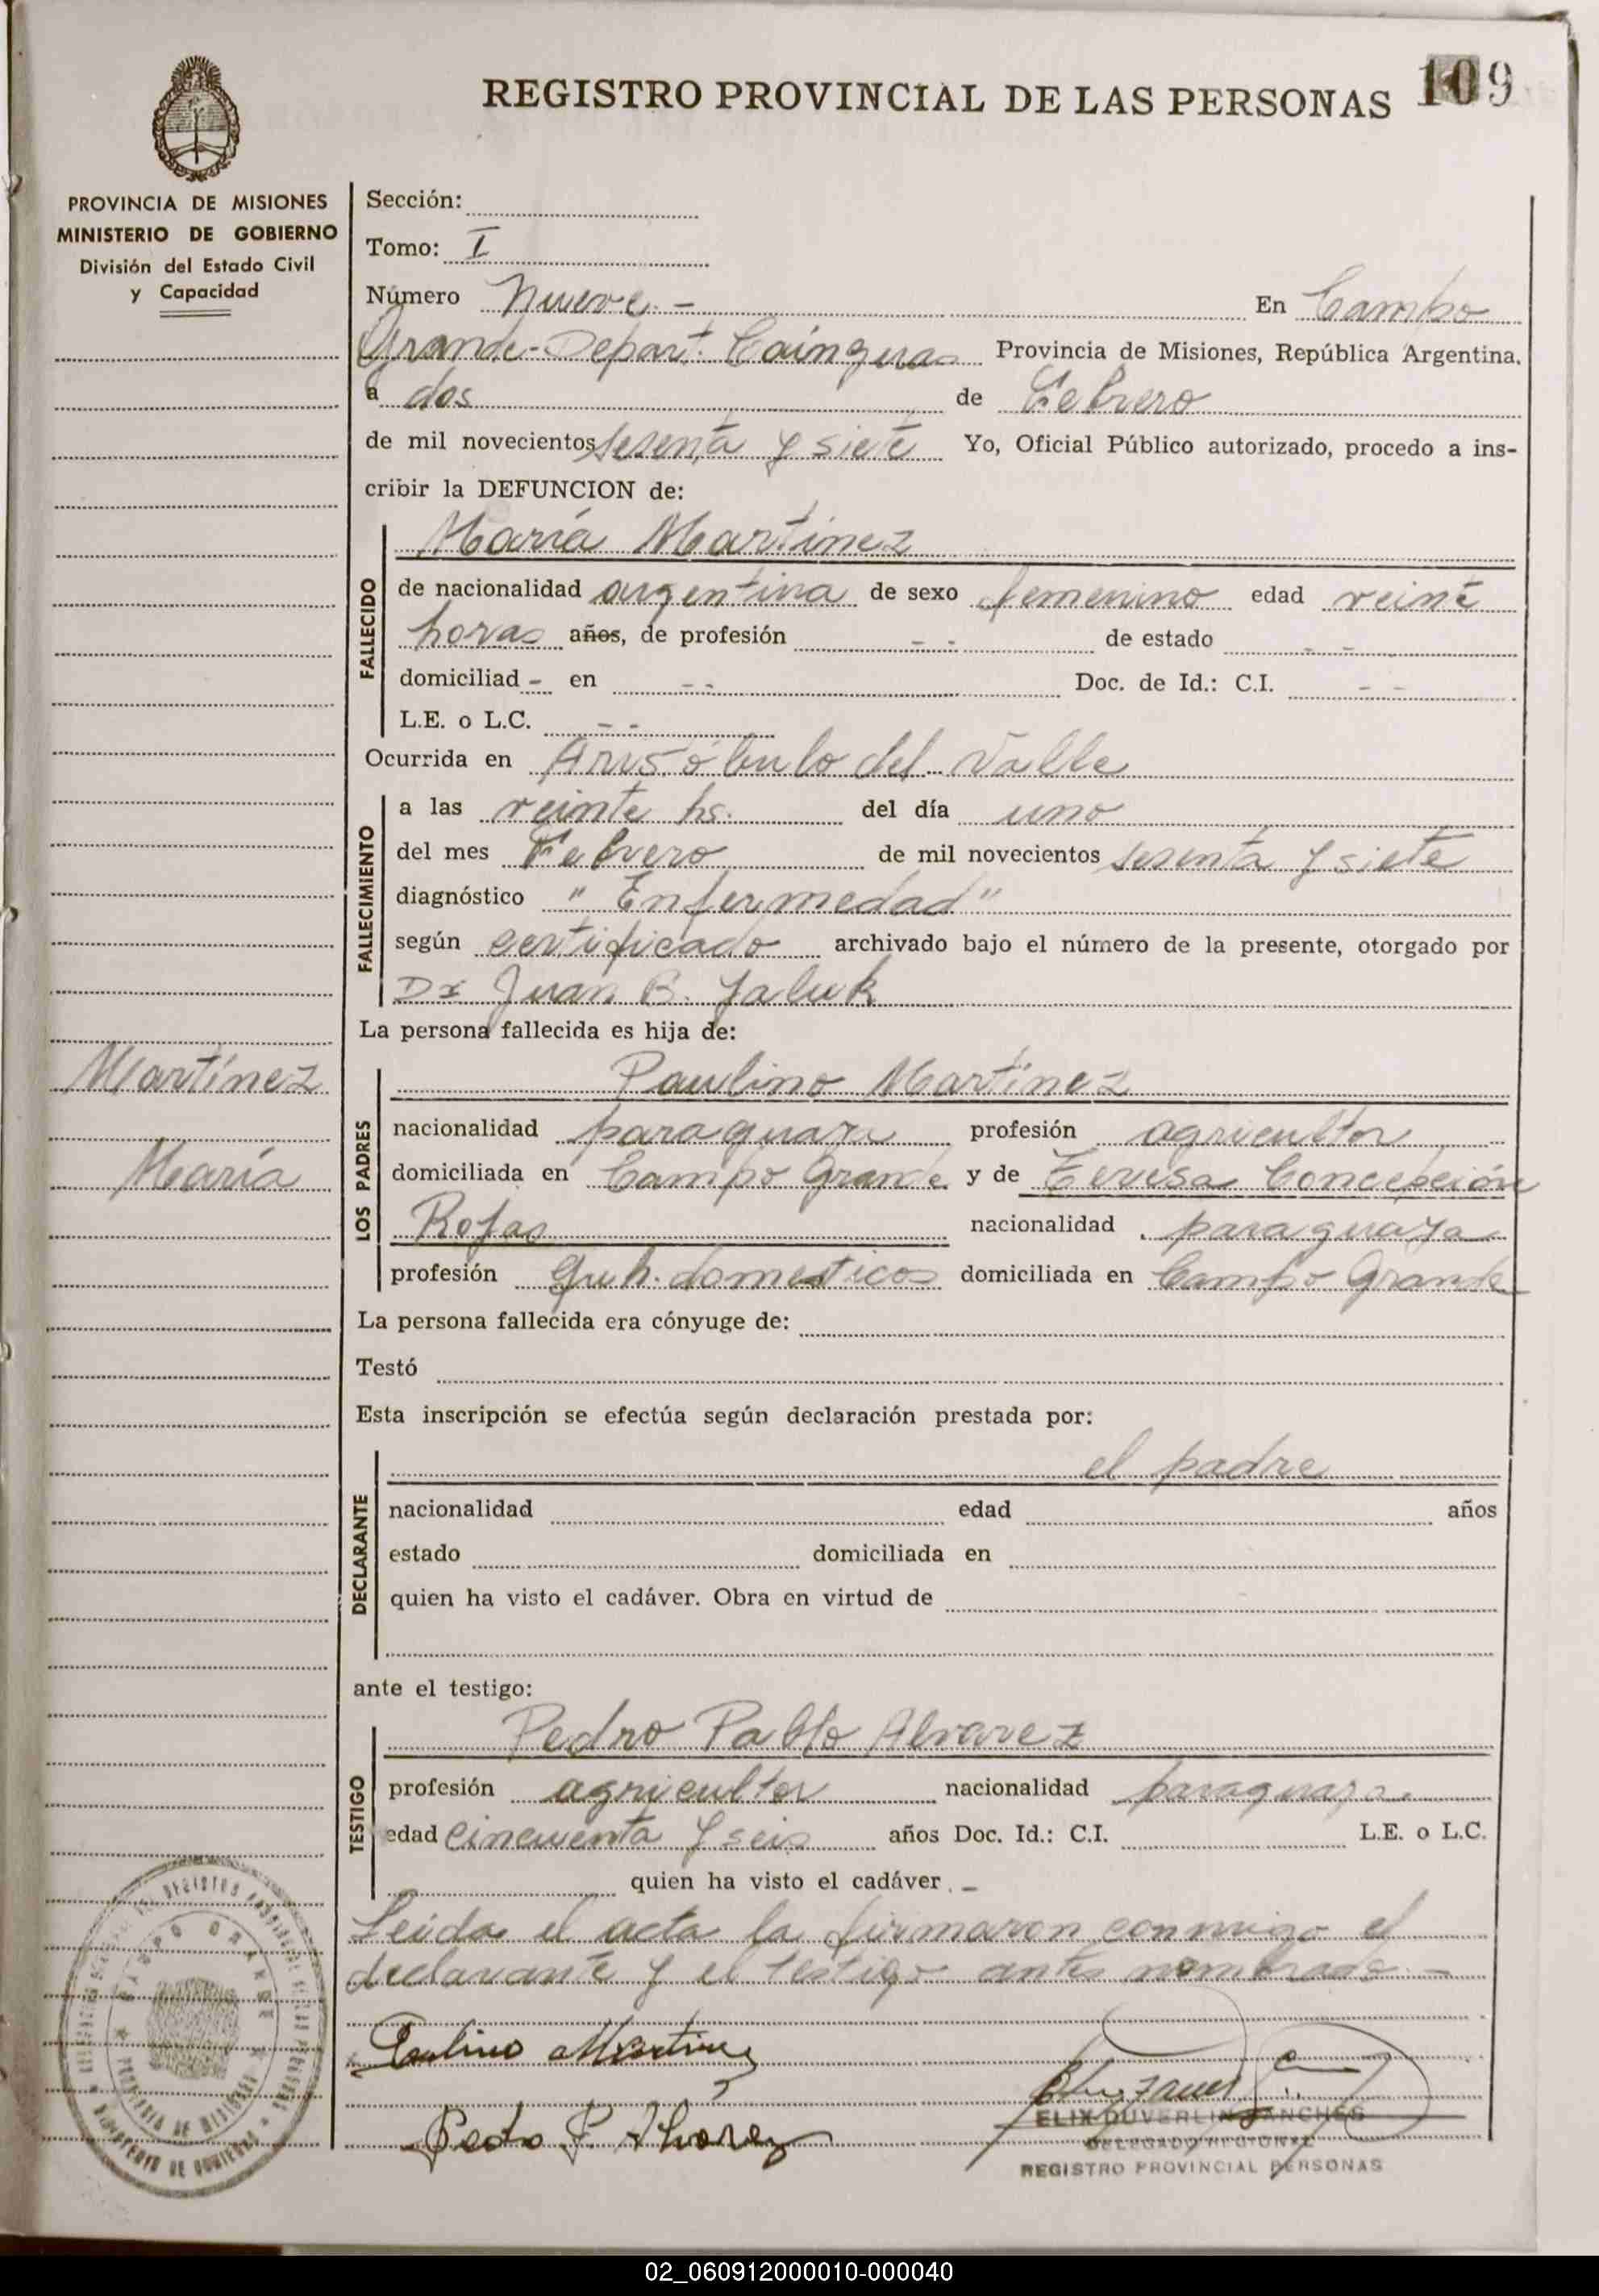 REGISTRO PROVINCIAL DE LAS PERSONAS 109
PROVINCIA DE MISIONES
MINISTERIO DE GOBIERNO
División del Estado Civil
y Capacidad
Sección:
Tomo: I
Número Nueve.- En Campo
Grande-Depart. Cainguas Provincia de Misiones, República Argentina.
a dos de Febrero
de mil novecientos sesenta y siete Yo, Oficial Público autorizado, procedo a ins-
cribir la DEFUNCION de:
María Martínez
FALLECIDO
de nacionalidad argentina de sexo femenino edad veinte
horas años, de profesión - - de estado - -
domiciliad - en - - Doc. de Id.: C.I. - -
L.E. o L.C. - -
Ocurrida en Aristóbulo del Valle
FALLECIMIENTO
a las veinte hs. del día uno
del mes Febrero de mil novecientos sesenta y siete
diagnóstico "Enfermedad"
según certificado archivado bajo el número de la presente, otorgado por
Dr Juan B. Jaluk
La persona fallecida es hija de:
Martínez
María
LOS PADRES
Paulino Martínez
nacionalidad paraguaya profesión agricultor
domiciliada en Campo Grande y de Teresa Concepción
Rojas nacionalidad paraguaya
profesión Queh. domesticos domiciliada en Campo Grande
La persona fallecida era cónyuge de:
Testó
Esta inscripción se efectúa según declaración prestada por:
DECLARANTE
el padre
nacionalidad edad años
estado domiciliada en
quien ha visto el cadáver. Obra en virtud de
ante el testigo:
TESTIGO
Pedro Pablo Alvarez
profesión agricultor nacionalidad paraguaya
edad cincuenta y seis años Doc. Id.: C.I. L.E. o L.C.
quien ha visto el cadáver. -
Leida el acta la firmaron conmigo el
declarante y el testigo antes nombrado. -
Paulino Martinez
Pedro P. Alvarez
ELIX DUVERLIN SANCHES
DELEGADO REGIONAL
REGISTRO PROVINCIAL PERSONAS
CAMPO GRANDE
PROVINCIA DE MISIONES
MINISTERIO DE GOBIERNO
02_060912000010-000040